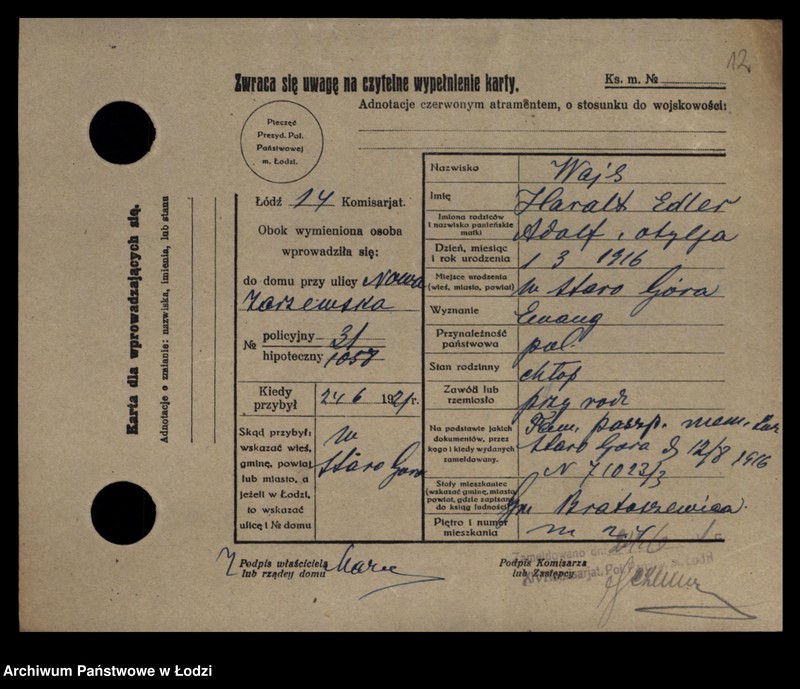 12
Zwraca się uwagę na czytelne wypełnienie karty.
Ks. m. №
Adnotacje czerwonym atramentem, o stosunku do wojskowości:
Pieczęć
Prezyd. Pol.
Państwowej
m. Łodzi.
Karta dla wprowadzających się.
Adnotacje o zmianie: nazwiska, imienia, lub stanu
Łódź 14 Komisarjat.
Obok wymieniona osoba
wprowadziła się:
do domu przy ulicy Nowo
Zarzewska
№ policyjny 31
hipoteczny 1058
Kiedy
przybył 24 6 1921 r.
Skąd przybył:
wskazać wieś,
gminę, powiat
lub miasto, a
jeżeli w Łodzi,
to wskazać
ulicę i № domu
w
Staro Gora
Nazwisko Wajs
Imię Haralt Edler
Imiona rodziców
i nazwisko panieńskie
matki
Adolf i Otylja
Dzień, miesiąc
i rok urodzenia 1 3 1916
Miejsce urodzenia
(wieś, miasto, powiat) w Staro Góra
Wyznanie Ewang
Przynależność
państwowa pol
Stan rodzinny chłop
Zawód lub
rzemiosło przy rodz
Na podstawie jakich
dokumentów, przez
kogo i kiedy wydanych
zameldowany.
paszp. niem.
Staro Gora d 12/8 1916
N 71023/3
Stały mieszkaniec
(wskazać gminę, miasto
powiat, gdzie zapisany
do ksiąg ludności)
gm Bratoszewice
Piętro i numer
mieszkania
Zameldowano dn.
Komisarjat. Pol. m. Łodzi
Podpis właściciela
lub rządcy domu
Podpis Komisarza
lub Zastępcy
Archiwum Państwowe w Łodzi